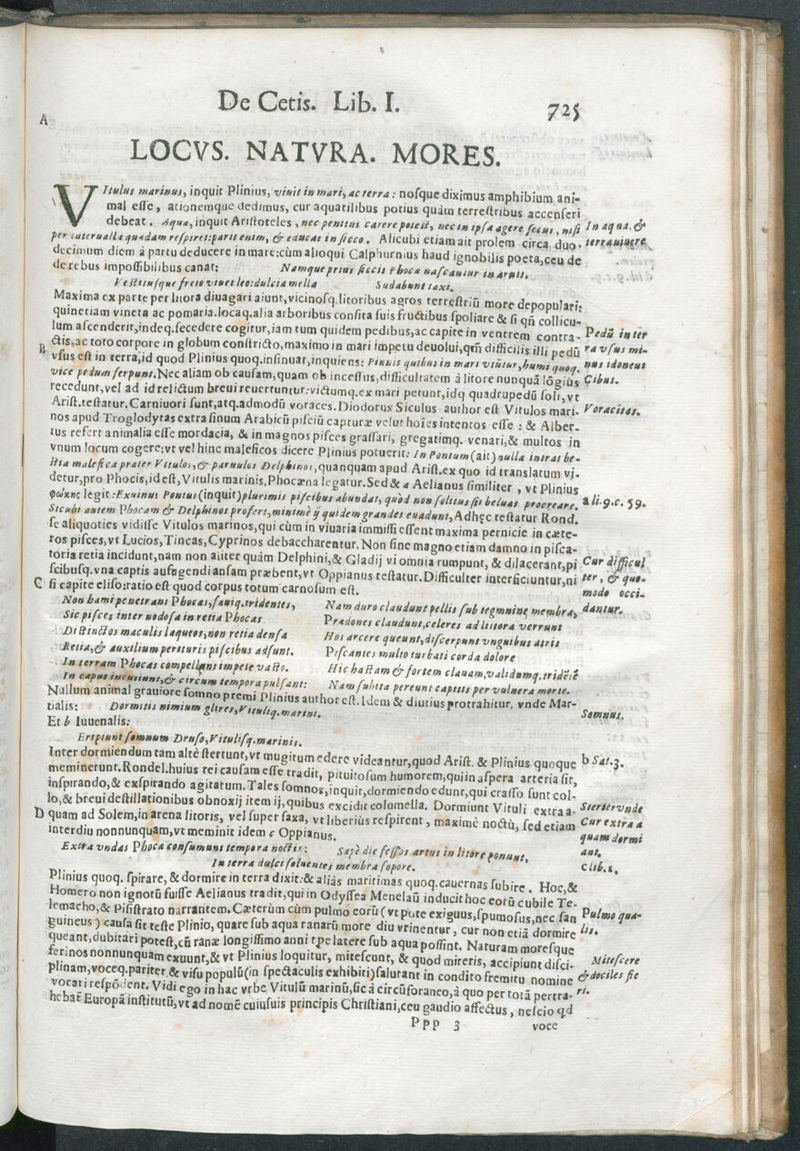 De Cetis. Lib. I. 725
A
LOCVS. NATVRA. MORES.
VItulus marinus, inquit Plinius, viuit in mari, ac terra: nosque diximus amphibium ani-
mal esse, rationemque dedimus, cur aquatilibus potius quàm terrestribus accenseri
debeat. Aqua, inquit Aristoteles, nec penitus carere potest, nec in ipsa agere secus, nisi In aqua, &
per interualla quadam respiret: parit enim, & educat in sicco. Alicubi etiam ait prolem circa duo- terra viuere
decimum diem à partu deducere in mare: cùm alioqui Calphurnius haud ignobilis poeta, ceu de
de rebus impossibilibus canat: Namque prius siccis Phoca nascantur in aruis,
Vestitusque freto viuet leo: dulcia mella Sudabunt taxi.
Maxima ex parte per litora diuagari aiunt, vicinosq. litoribus agros terrestriū more depopulari:
quinetiam vineta ac pomaria. locaq. alia arboribus consita suis fructibus spoliare & si qñ collicu-
lum ascenderit, indeq. secedere cogitur, iam tum quidem pedibus, ac capite in ventrem contra- Pedū inter
B ctis, ac toto corpore in globum constricto, maximo in mari impetu deuolui, qm̄ difficilis illi pedū ra vsus mi-
vsus est in terra, id quod Plinius quoq. insinuat, inquiens: Pinnis quibus in mari vtūtur, humi quoq. nus idoneus
vice pedum serpunt. Nec aliam ob causam, quam ob incessus, difficultatem à litore nunquā lōgius Cibus.
recedunt, vel ad id relictum breui reuertuntur: victumq. ex mari petunt, idq quadrupedū soli, vt
Arist. testatur. Carniuori sunt, atq. admodū voraces. Diodorus Siculus author est Vitulos mari- Voracitas.
nos apud Troglodytas extra sinum Arabicū pisciū capturæ velut hoīes intentos esse: & Alber-
tus refert animalia esse mordacia, & in magnos pisces grassari, gregatimq. venari, & multos in
vnum locum cogere: vt vel hinc maleficos dicere Plinius potuerit: In Pontum (ait) nulla intrat be-
stia malefica præter Vitulos, & paruulos Delphinos, quanquam apud Arist. ex quo id translatum vi-
detur, pro Phocis, id est, Vitulis marinis, Phocæna legatur. Sed & a Aelianus similiter, vt Plinius
φώκης legit: Euxinus Pontus (inquit) plurimis piscibus abundat, quòd non solitus sit beluas procreare. a li. 9. c. 59.
Sicubi autem Phocam & Delphinos profert, minimè ij quidem grandes euadunt, Adhęc testatur Rond.
se aliquoties vidisse Vitulos marinos, qui cùm in viuaria immissi essent maxima pernicie in cæte-
ros pisces, vt Lucios, Tincas, Cyprinos debaccharentur. Non sine magno etiam damno in pisca-
toria retia incidunt, nam non aliter quàm Delphini, & Gladij vi omnia rumpunt, & dilacerant, pi Cur difficul
scibusq. vna captis aufugendi ansam præbent, vt Oppianus testatur. Difficulter interficiuntur, ni ter, & quo-
C si capite eliso: ratio est quod corpus totum carnosum est. modo occi-
Non hami penetrant Phocas, sæuiq. tridentes, Nam duro claudunt pellis sub tegmine membra, dantur.
Sic pisces inter nodosa in retia Phocas Prædones claudunt, celeres ad littora verrunt
Distinctos maculis laqueos, non retia densa Hos arcere queunt, discerpunt vnguibus atris
Retia, & auxilium perituris piscibus adsunt. Piscantes multo turbati corda dolore
In terram Phocas compellunt impete vasto. Hic hastam & fortem clauam, validumq. tridētē
In caput incutiunt, & circum tempora pulsant: Nam subita pereunt capitis per vulnera morte.
Nullum animal grauiore somno premi Plinius author est. Idem & diutius protrahitur, vnde Mar-
tialis: Dormitis nimium glires, Vituliq. marini. Somnus.
Et b Iuuenalis:
Eripiunt somnum Druso, Vitulisq. marinis.
Inter dormiendum tam altè stertunt, vt mugitum edere videantur, quod Arist. & Plinius quoque b Sat. 3.
meminerunt. Rondel. huius rei causam esse tradit, pituitosum humorem, qui in aspera arteria sit,
inspirando, & exspirando agitatum. Tales somnos, inquit, dormiendo edunt, qui crasso sunt col-
lo, & breui destillationibus obnoxij item ij, quibus excidit columella. Dormiunt Vituli extra a- Stertere vnde
D quam ad Solem, in arena litoris, vel super saxa, vt liberius respirent, maximè noctù, sed etiam Cur extra a
interdiu nonnunquam, vt meminit idem c Oppianus. quam dormi
Extra vndas Phoca consumunt tempora noctis: Sæpè die fessos artus in litore ponunt, ant.
In terra dulci soluentes membra sopore. c lib. 1.
Plinius quoq. spirare, & dormire in terra dixit: & aliàs maritimas quoq. cauernas subire. Hoc, &
Homero non ignotū fuisse Aelianus tradit, qui in Odyssea Menelaū inducit hoc eorū cubile Te-
lemacho, & Pisistrato narrantem. Cæterùm cùm pulmo eorū (vt pote exiguus, spumosus, nec san Pulmo qua-
guineus) causa sit teste Plinio, quare sub aqua ranarū more diu vrinentur, cur non etiā dormire lis.
queant, dubitari potest, cū ranæ longissimo anni tp̄e latere sub aqua possint. Naturam moresque
ferinos nonnunquam exuunt, & vt Plinius loquitur, mitescunt, & quod mireris, accipiunt disci- Mitescere
plinam, voceq. pariter & visu populū (in spectaculis exhibiti) salutant in condito fremitu nomine & dociles fie
vocati respōdent. Vidi ego in hac vrbe Vitulū marinū, sic à circūforaneo, à quo per totā pertra- ri.
hebat̃ Europā institutū, vt ad nomē cuiusuis principis Christiani, ceu gaudio affectus, nescio qd
PPP 3 voce